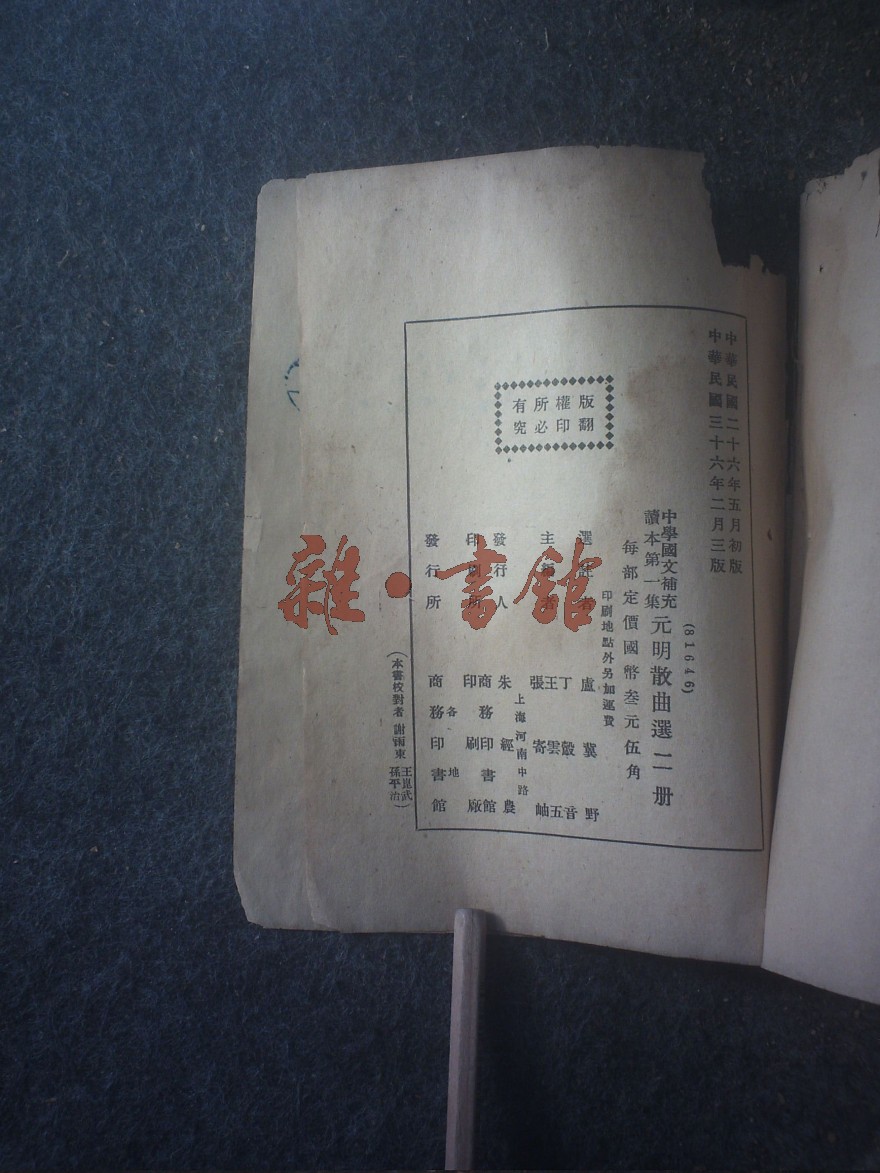 中華民國二十六年五月初版
中華民國三十六年二月三版
(81646)
中學國文補充
讀本第一集
元明散曲選二册
每部定價國幣叁元伍角
印刷地點外另加運費
版權所有
翻印必究
選註者 盧冀野
主編者 丁㲄音 王雲五 張寄岫
上海河南中路
發行人 朱經農
印刷所 商務印書館 印刷廠
各地
發行所 商務印書館
(本書校對者 謝雨東 王崑武 孫平治)
雜·書館